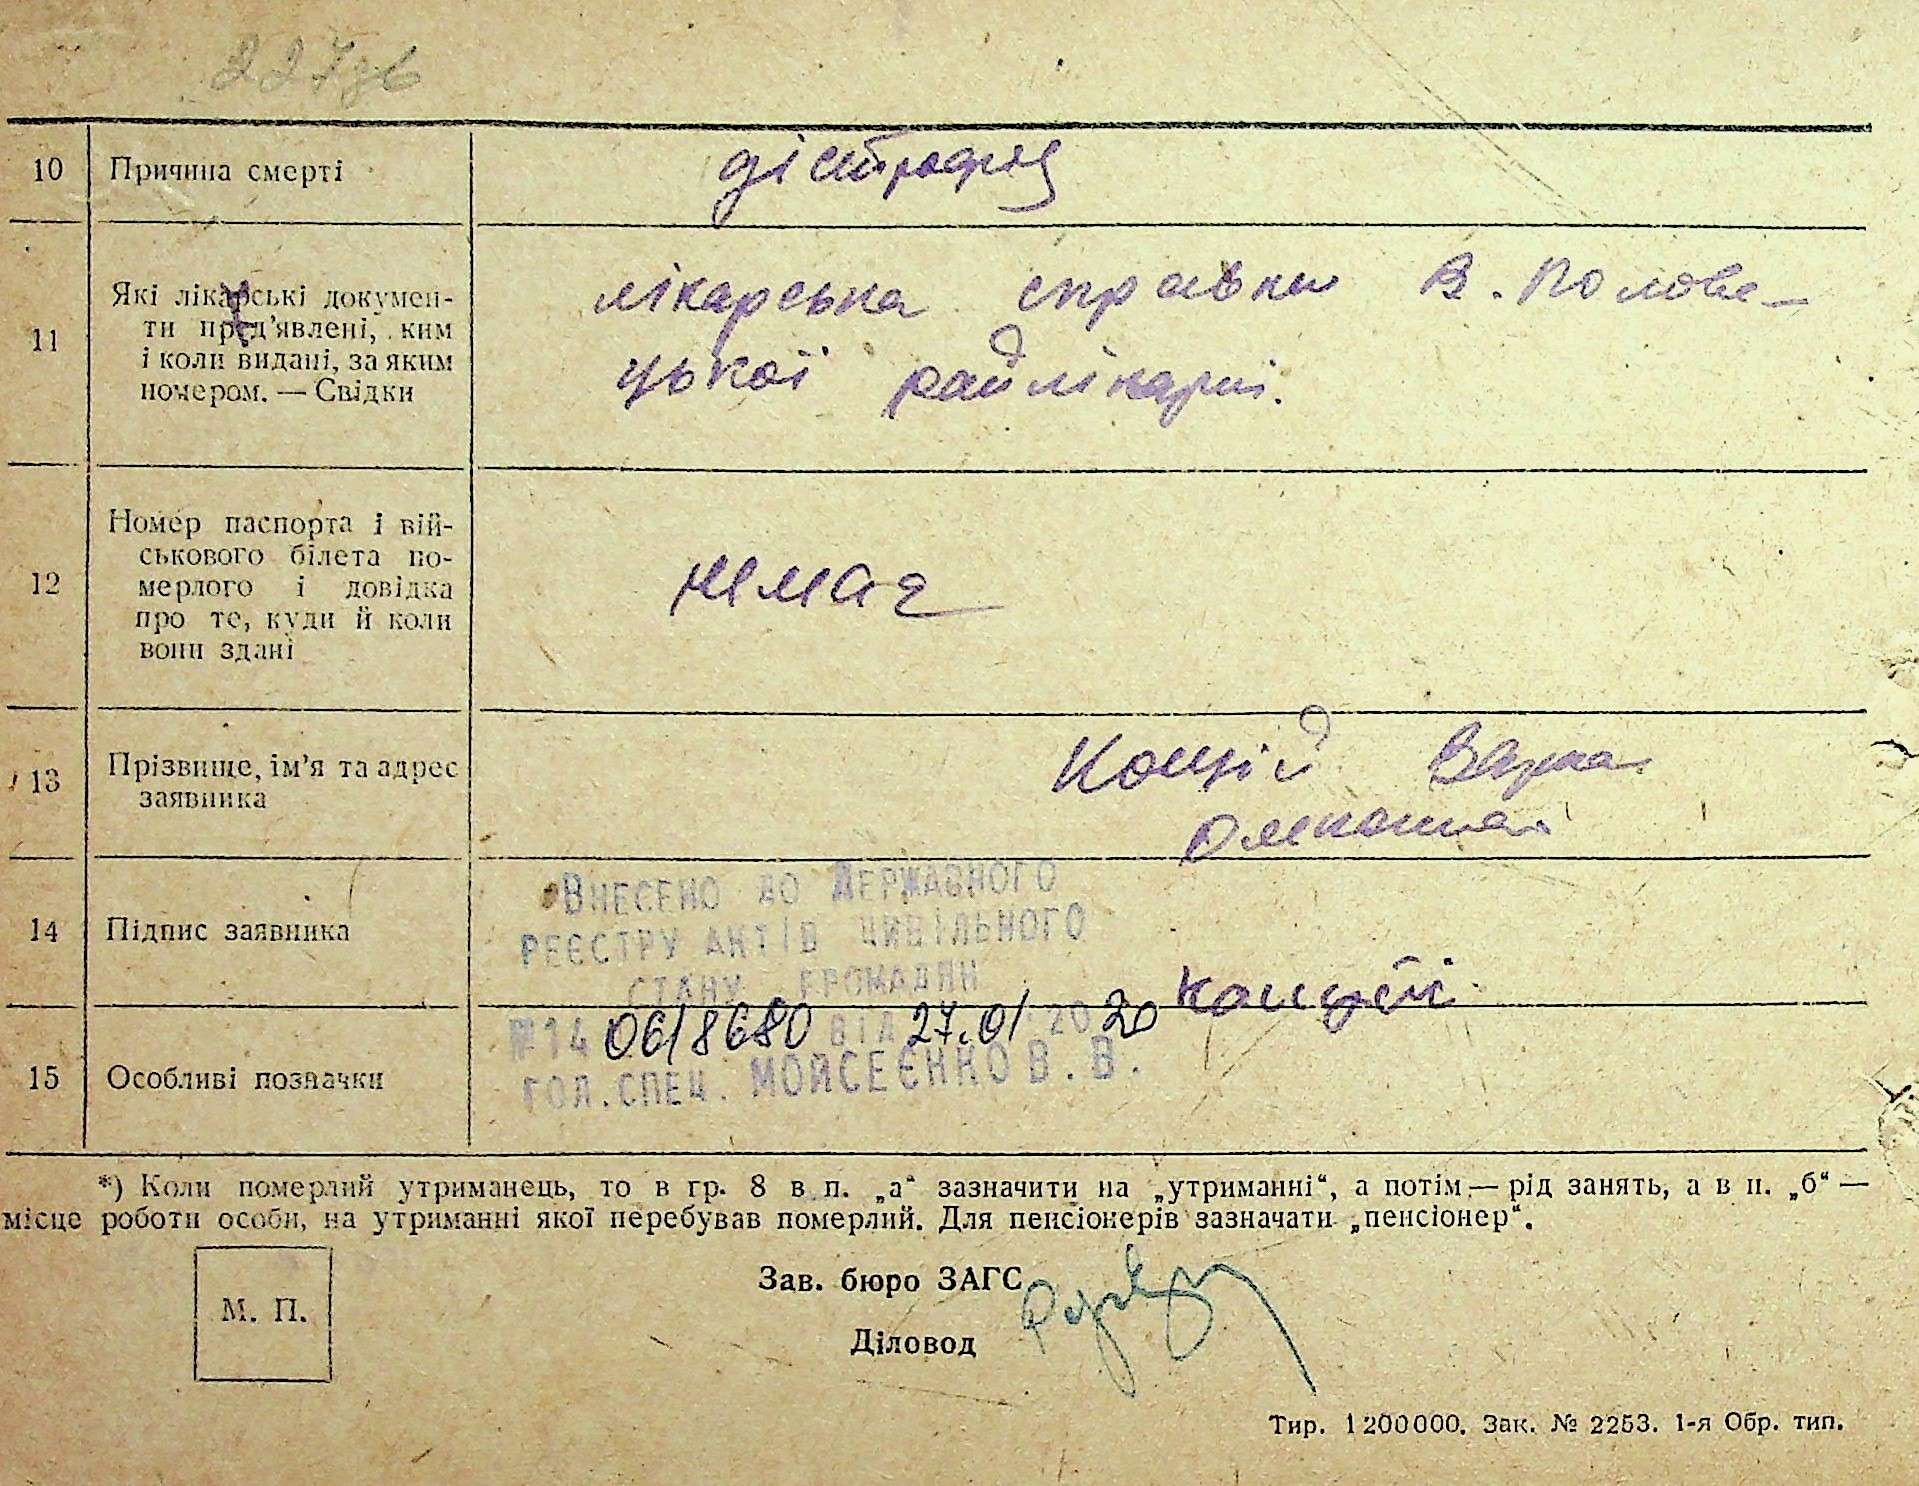 227зв
10 Причина смерті дістрофія
11 Які лікарські докумен-
ти пред'явлені, ким
і коли видані, за яким
номером. — Свідки
лікарська справка В. Полове-
цької райлікарні.
12 Номер паспорта і вій-
ськового білета по-
мерлого і довідка
про те, куди й коли
вони здані
німає
13 Прізвище, ім'я та адрес
заявника
Коцій Варка
14 Підпис заявника
Внесено до Державного
реєстру актів цивільного
стану громадян
№14 06/8680 від 27.01 2020
гол. спец. Мойсеєнко В. В.
15 Особливі позначки
*) Коли померлий утриманець, то в гр. 8 в п. „а“ зазначити на „утриманні“, а потім — рід занять, а в п. „б“ —
місце роботи особи, на утриманні якої перебував померлий. Для пенсіонерів зазначати „пенсіонер“.
М. П.
Зав. бюро ЗАГС
Діловод
Тир. 1200000. Зак. № 2253. 1-я Обр. тип.